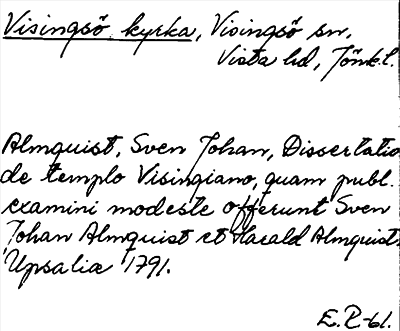 Visingsö kyrka, Visingsö sn,
Vista hd, Jönk.l.
Almquist, Sven Johan, Dissertatio
de templo Visingiano, quam publ.
examini modeste offerunt Sven
Johan Almquist et Harald Almquist.
Upsaliæ 1791.
E.R-61.